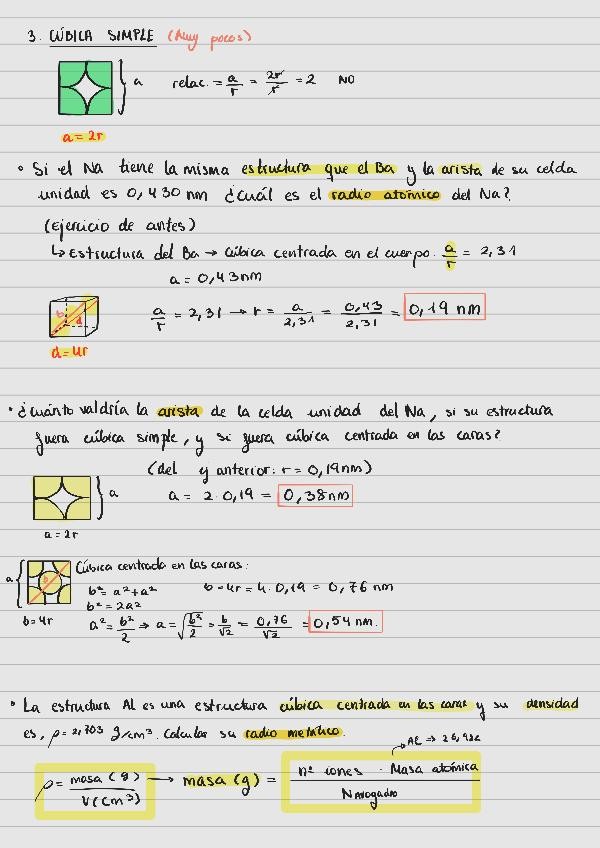 3. CÚBICA SIMPLE (Muy pocos)
a relac. = a/r = 2r/r = 2 NO
a = 2r
• Si el Na tiene la misma estructura que el Ba y la arista de su celda
unidad es 0,430 nm ¿Cuál es el radio atómico del Na?
(Ejercicio de antes)
↳ Estructura del Ba → Cúbica centrada en el cuerpo. a/r = 2,31
a = 0,43nm
b d a/r = 2,31 → r = a/2,31 = 0,43/2,31 = 0,19 nm
d = 4r
• ¿Cuánto valdría la arista de la celda unidad del Na, si su estructura
fuera cúbica simple, y si fuera cúbica centrada en las caras?
(del y anterior: r = 0,19nm)
a a = 2·0,19 = 0,38nm
a = 2r
a b Cúbica centrada en las caras:
b² = a² + a² b = 4r = 4·0,19 = 0,76 nm
b² = 2a²
b = 4r a² = b²/2 → a = √b²/2 = b/√2 = 0,76/√2 = 0,54 nm.
• La estructura Al es una estructura cúbica centrada en las caras y su densidad
es, ρ = 2,703 g/cm³. Calcular su radio metálico.
Al → 26,982
ρ = masa (g)/V(cm³) → masa (g) = nº iones · Masa atómica/Navogadro